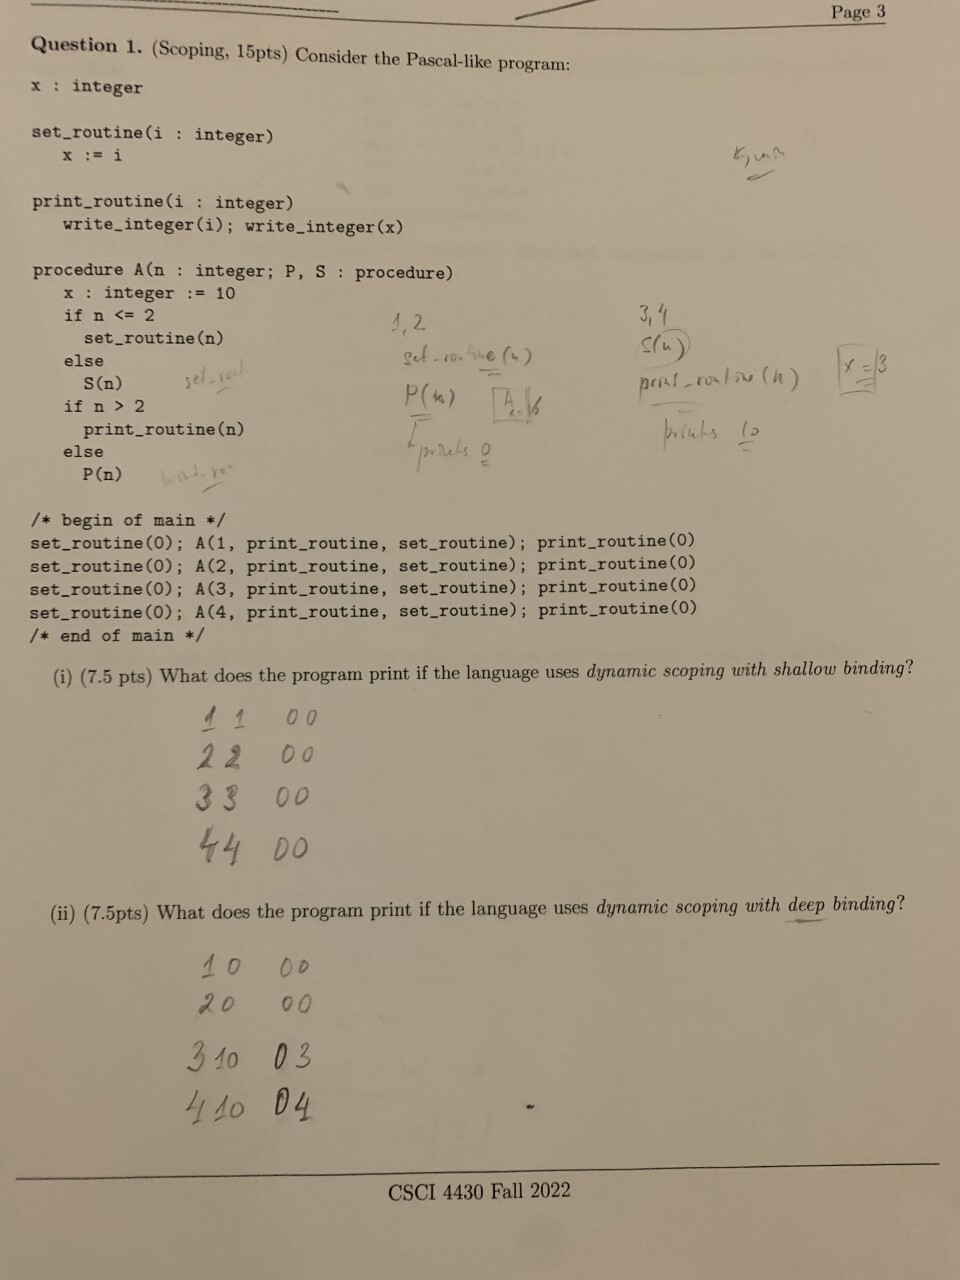 Page 3
Question 1. (Scoping, 15pts) Consider the Pascal-like program:
x : integer
set_routine(i : integer)
x := i
print_routine(i : integer)
write_integer(i); write_integer(x)
procedure A(n : integer; P, S : procedure)
x : integer := 10
if n <= 2
set_routine(n)
else
S(n)
if n > 2
print_routine(n)
else
P(n)
1,2
set-routine(n)
P(n)
A
prints 0
3,4
S(n)
print-routine(n)
prints 10
x = 3
/* begin of main */
set_routine(0); A(1, print_routine, set_routine); print_routine(0)
set_routine(0); A(2, print_routine, set_routine); print_routine(0)
set_routine(0); A(3, print_routine, set_routine); print_routine(0)
set_routine(0); A(4, print_routine, set_routine); print_routine(0)
/* end of main */
(i) (7.5 pts) What does the program print if the language uses dynamic scoping with shallow binding?
1 1 00
2 2 00
3 3 00
44 00
(ii) (7.5pts) What does the program print if the language uses dynamic scoping with deep binding?
1 0 00
20 00
3 10 03
4 10 04
CSCI 4430 Fall 2022